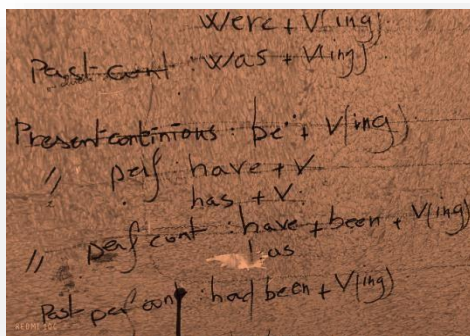 were + V(ing)
Past cont : was + V(ing)
Present continious : be + V(ing)
" perf : have + V
has + V
" perf cont : have + been + V(ing)
has
Past perf cont : had been + V(ing)
REDMI 10C